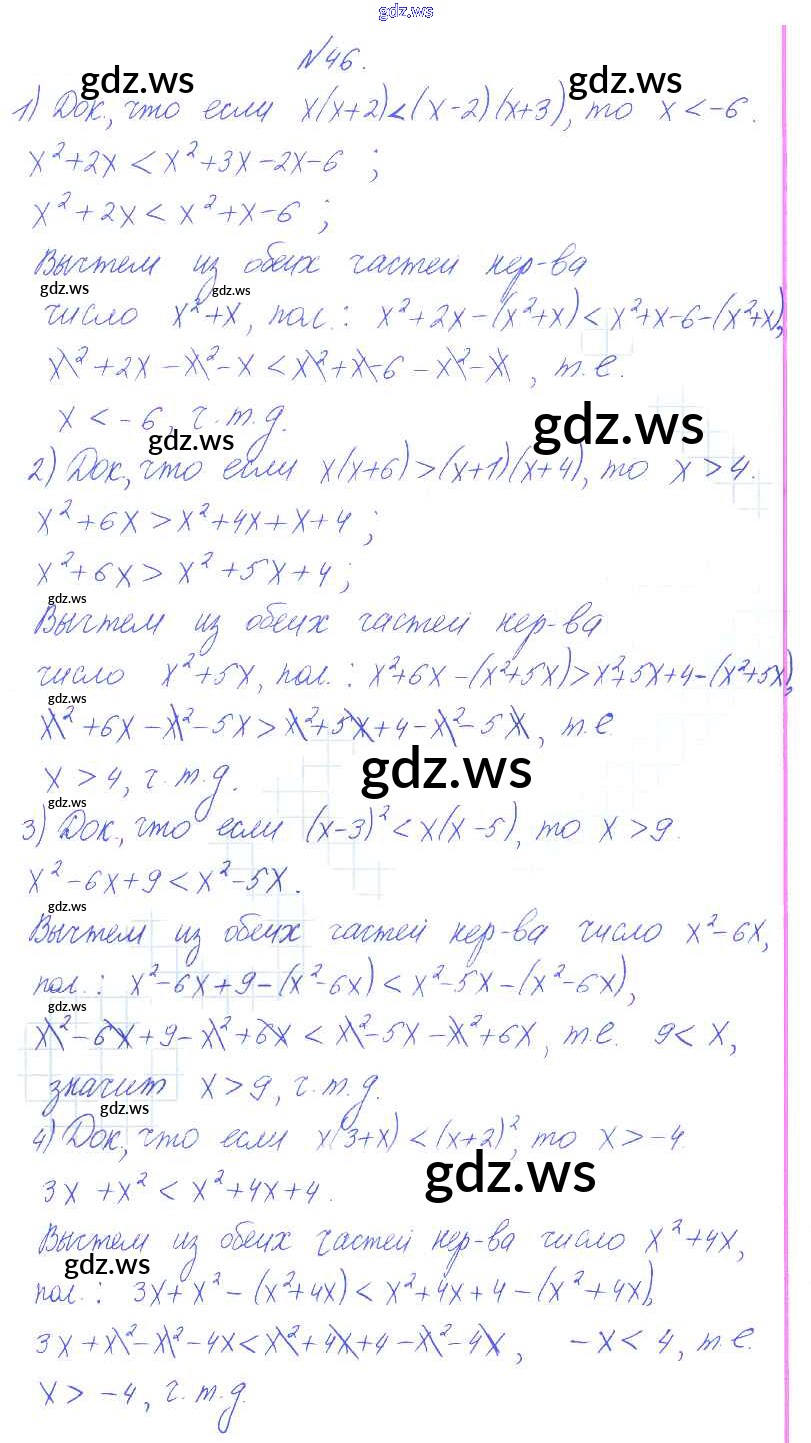 gdz.ws
N46.
gdz.ws gdz.ws
1) Док., что если x(x+2)<(x-2)(x+3), то x<-6.
x²+2x<x²+3x-2x-6 ;
x²+2x<x²+x-6 ;
Вычтем из обеих частей нер-ва
gdz.ws gdz.ws
число x²+x, пол.: x²+2x-(x²+x)<x²+x-6-(x²+x),
x²+2x-x²-x<x²+x-6-x²-x, т.е.
x<-6, ч.т.д.
gdz.ws gdz.ws
2) Док., что если x(x+6)>(x+1)(x+4), то x>4.
x²+6x>x²+4x+x+4 ;
x²+6x>x²+5x+4 ;
gdz.ws
Вычтем из обеих частей нер-ва
число x²+5x, пол.: x²+6x-(x²+5x)>x²+5x+4-(x²+5x),
gdz.ws
x²+6x-x²-5x>x²+5x+4-x²-5x, т.е.
x>4, ч.т.д.
gdz.ws
gdz.ws
3) Док., что если (x-3)²<x(x-5), то x>9.
x²-6x+9<x²-5x.
gdz.ws
Вычтем из обеих частей нер-ва число x²-6x,
пол.: x²-6x+9-(x²-6x)<x²-5x-(x²-6x),
gdz.ws
x²-6x+9-x²+6x<x²-5x-x²+6x, т.е. 9<x,
значит x>9, ч.т.д.
gdz.ws
4) Док., что если x(3+x)<(x+2)², то x>-4.
gdz.ws
3x+x²<x²+4x+4.
Вычтем из обеих частей нер-ва число x²+4x,
gdz.ws
пол.: 3x+x²-(x²+4x)<x²+4x+4-(x²+4x),
3x+x²-x²-4x<x²+4x+4-x²-4x, -x<4, т.е.
x>-4, ч.т.д.